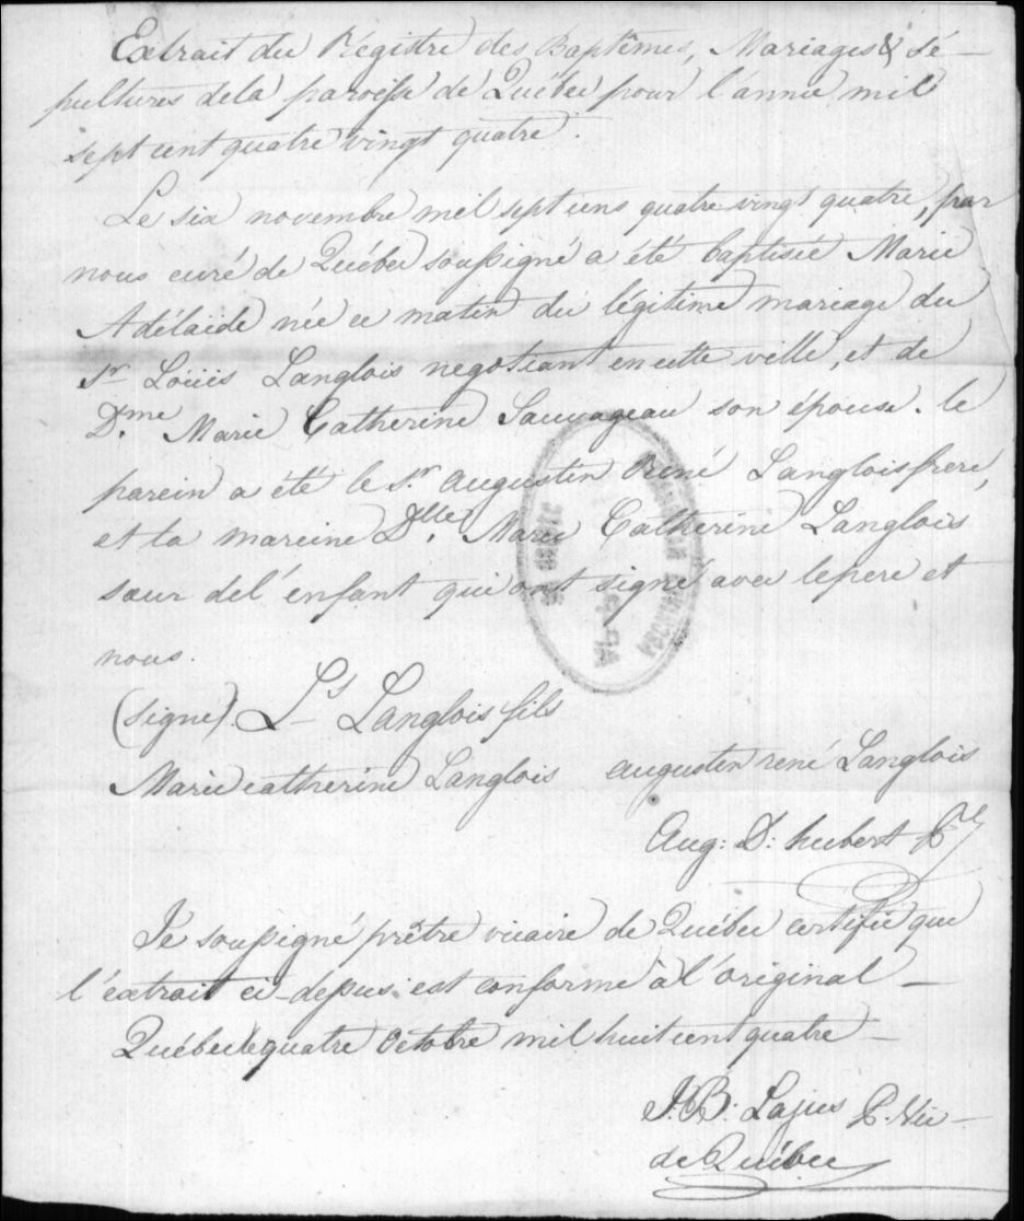 Extrait du Régistre des Baptêmes, Mariages & Sé-
pultures dela paroisse de Québec pour l'année mil
sept cent quatre vingt quatre.
Le six novembre mil sept cens quatre-vingt quatre, par
nous curé de Québec soussigné a été baptisée Marie
Adélaïde née ce matin du légitime mariage du
Sr Loüis Langlois negotiant en cette ville, et de
D.me Marie Catherine Sauvageau son épouse. le
parein a été le Sr. Augustin René Langlois frere,
et la mareine Dlle. Marie Catherine Langlois
sœur del'enfant qui ont signé avec le pere et
nous.
(signé). Ls Langlois fils
Marie catherine Langlois augustin rené Langlois
Aug: D: hubert
Je soussigné prêtre vicaire de Québec certifie que
l'extrait ci-dessus est conforme à l'original —
Québec le quatre Octobre mil huit cent quatre —
J.B. Lajus P. Vic—
de Québec